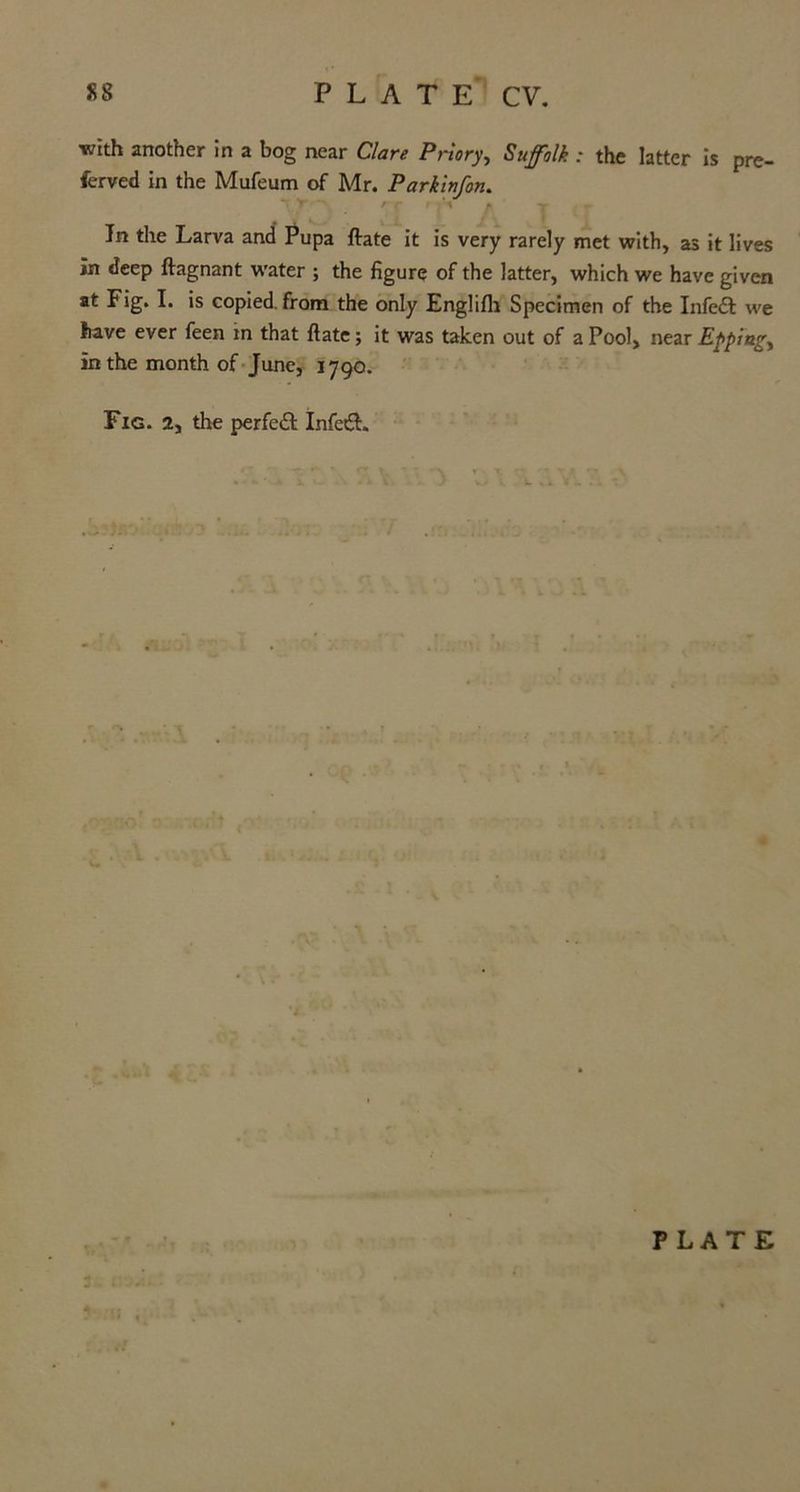 88 PLATE CV.
with another in a bog near Clare Priory, Suffolk : the latter is pre-
ſerved in the Muſeum of Mr. Parkinſon.
In the Larva and Pupa ſtate it is very rarely met with, as it lives
in deep ſtagnant water ; the figure of the latter, which we have given
at Fig. I. is copied from the only Engliſh Specimen of the Inſect we
have ever ſeen in that ſtate ; it was taken out of a Pool, near Epping,
in the month of June, 1790.
Fig. 2, the perfect Inſect.
PLATE